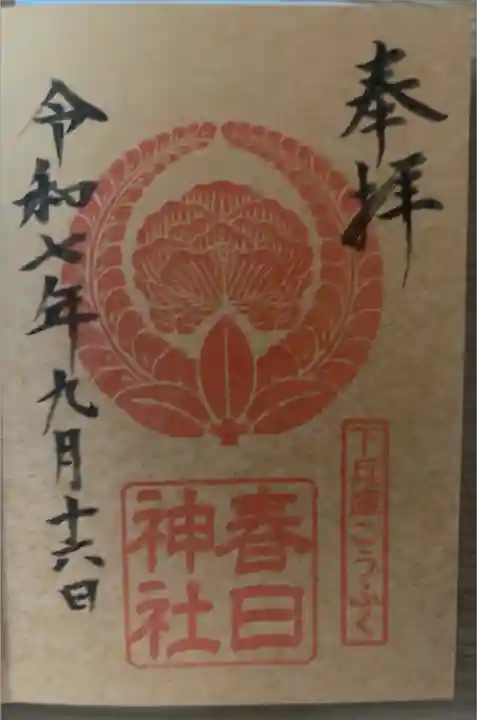 奉拝
下兵庫こうふく
春日
神社
令和七年九月十六日